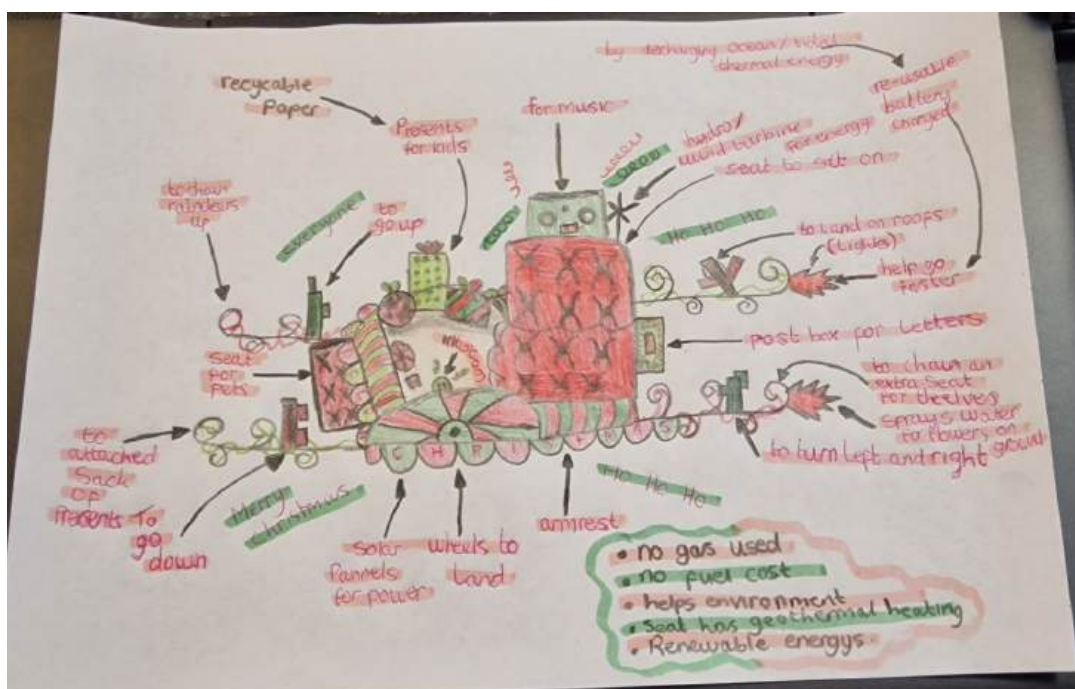 by recharging ocean/tidal
thermal energy
re-usable
battery
charged
recycable
Paper
Presents
for kids
for music
hydro/
wind turbine
for energy
seat to sit on
to chain
raindeers
up
everyone
to
go up
Ho Ho Ho
to Land on roofs
(Lights)
help go
faster
post box for Letters
Seat
for
pets
to chain an
extra seat
for the elves
sprays water
to flowers on
ground
to turn left and right
to
attached
Sack
of
Presents
To
go
down
C H R I S T M A S
Merry
christmus
Ho Ho Ho
armrest
solar
Pannels
for power
wheels to
Land
• no gas used
• no fuel cost
• helps environment
• Seat has geothermal heating
• Renewable energys